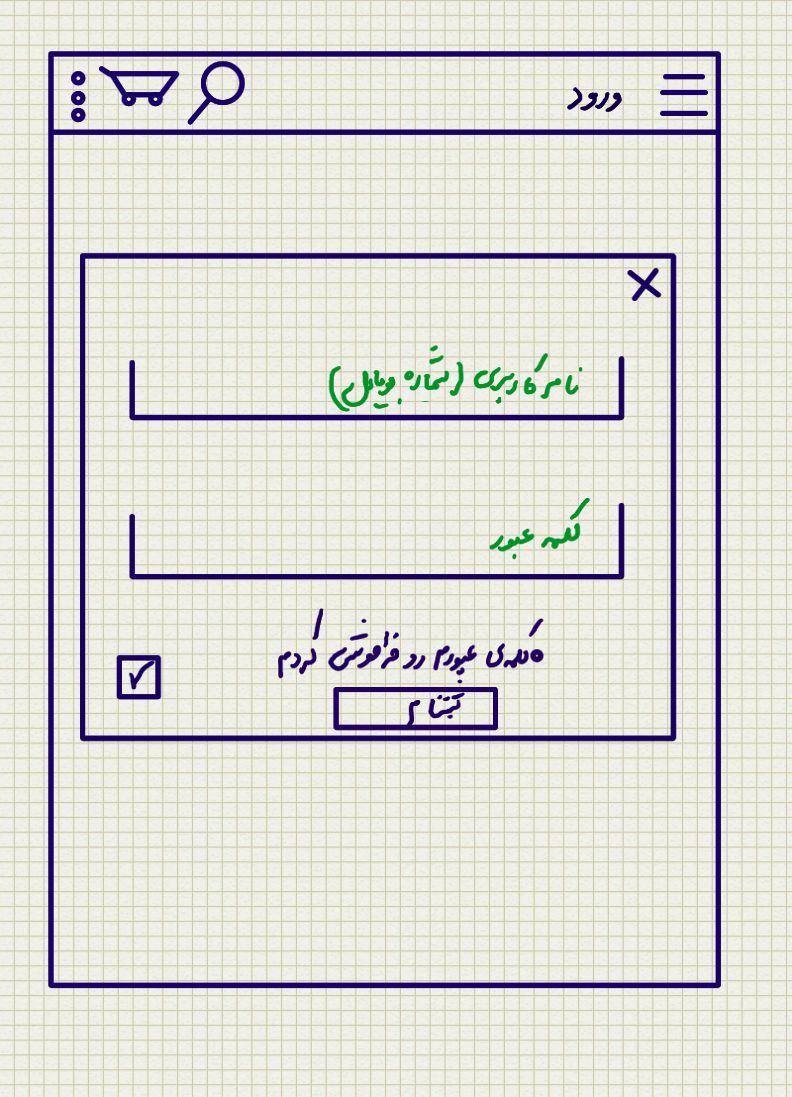 ورود
نام کاربری (شماره موبایل)
کلمه عبور
کلمه‌ی عبورم رو فراموش کردم
ثبتنام